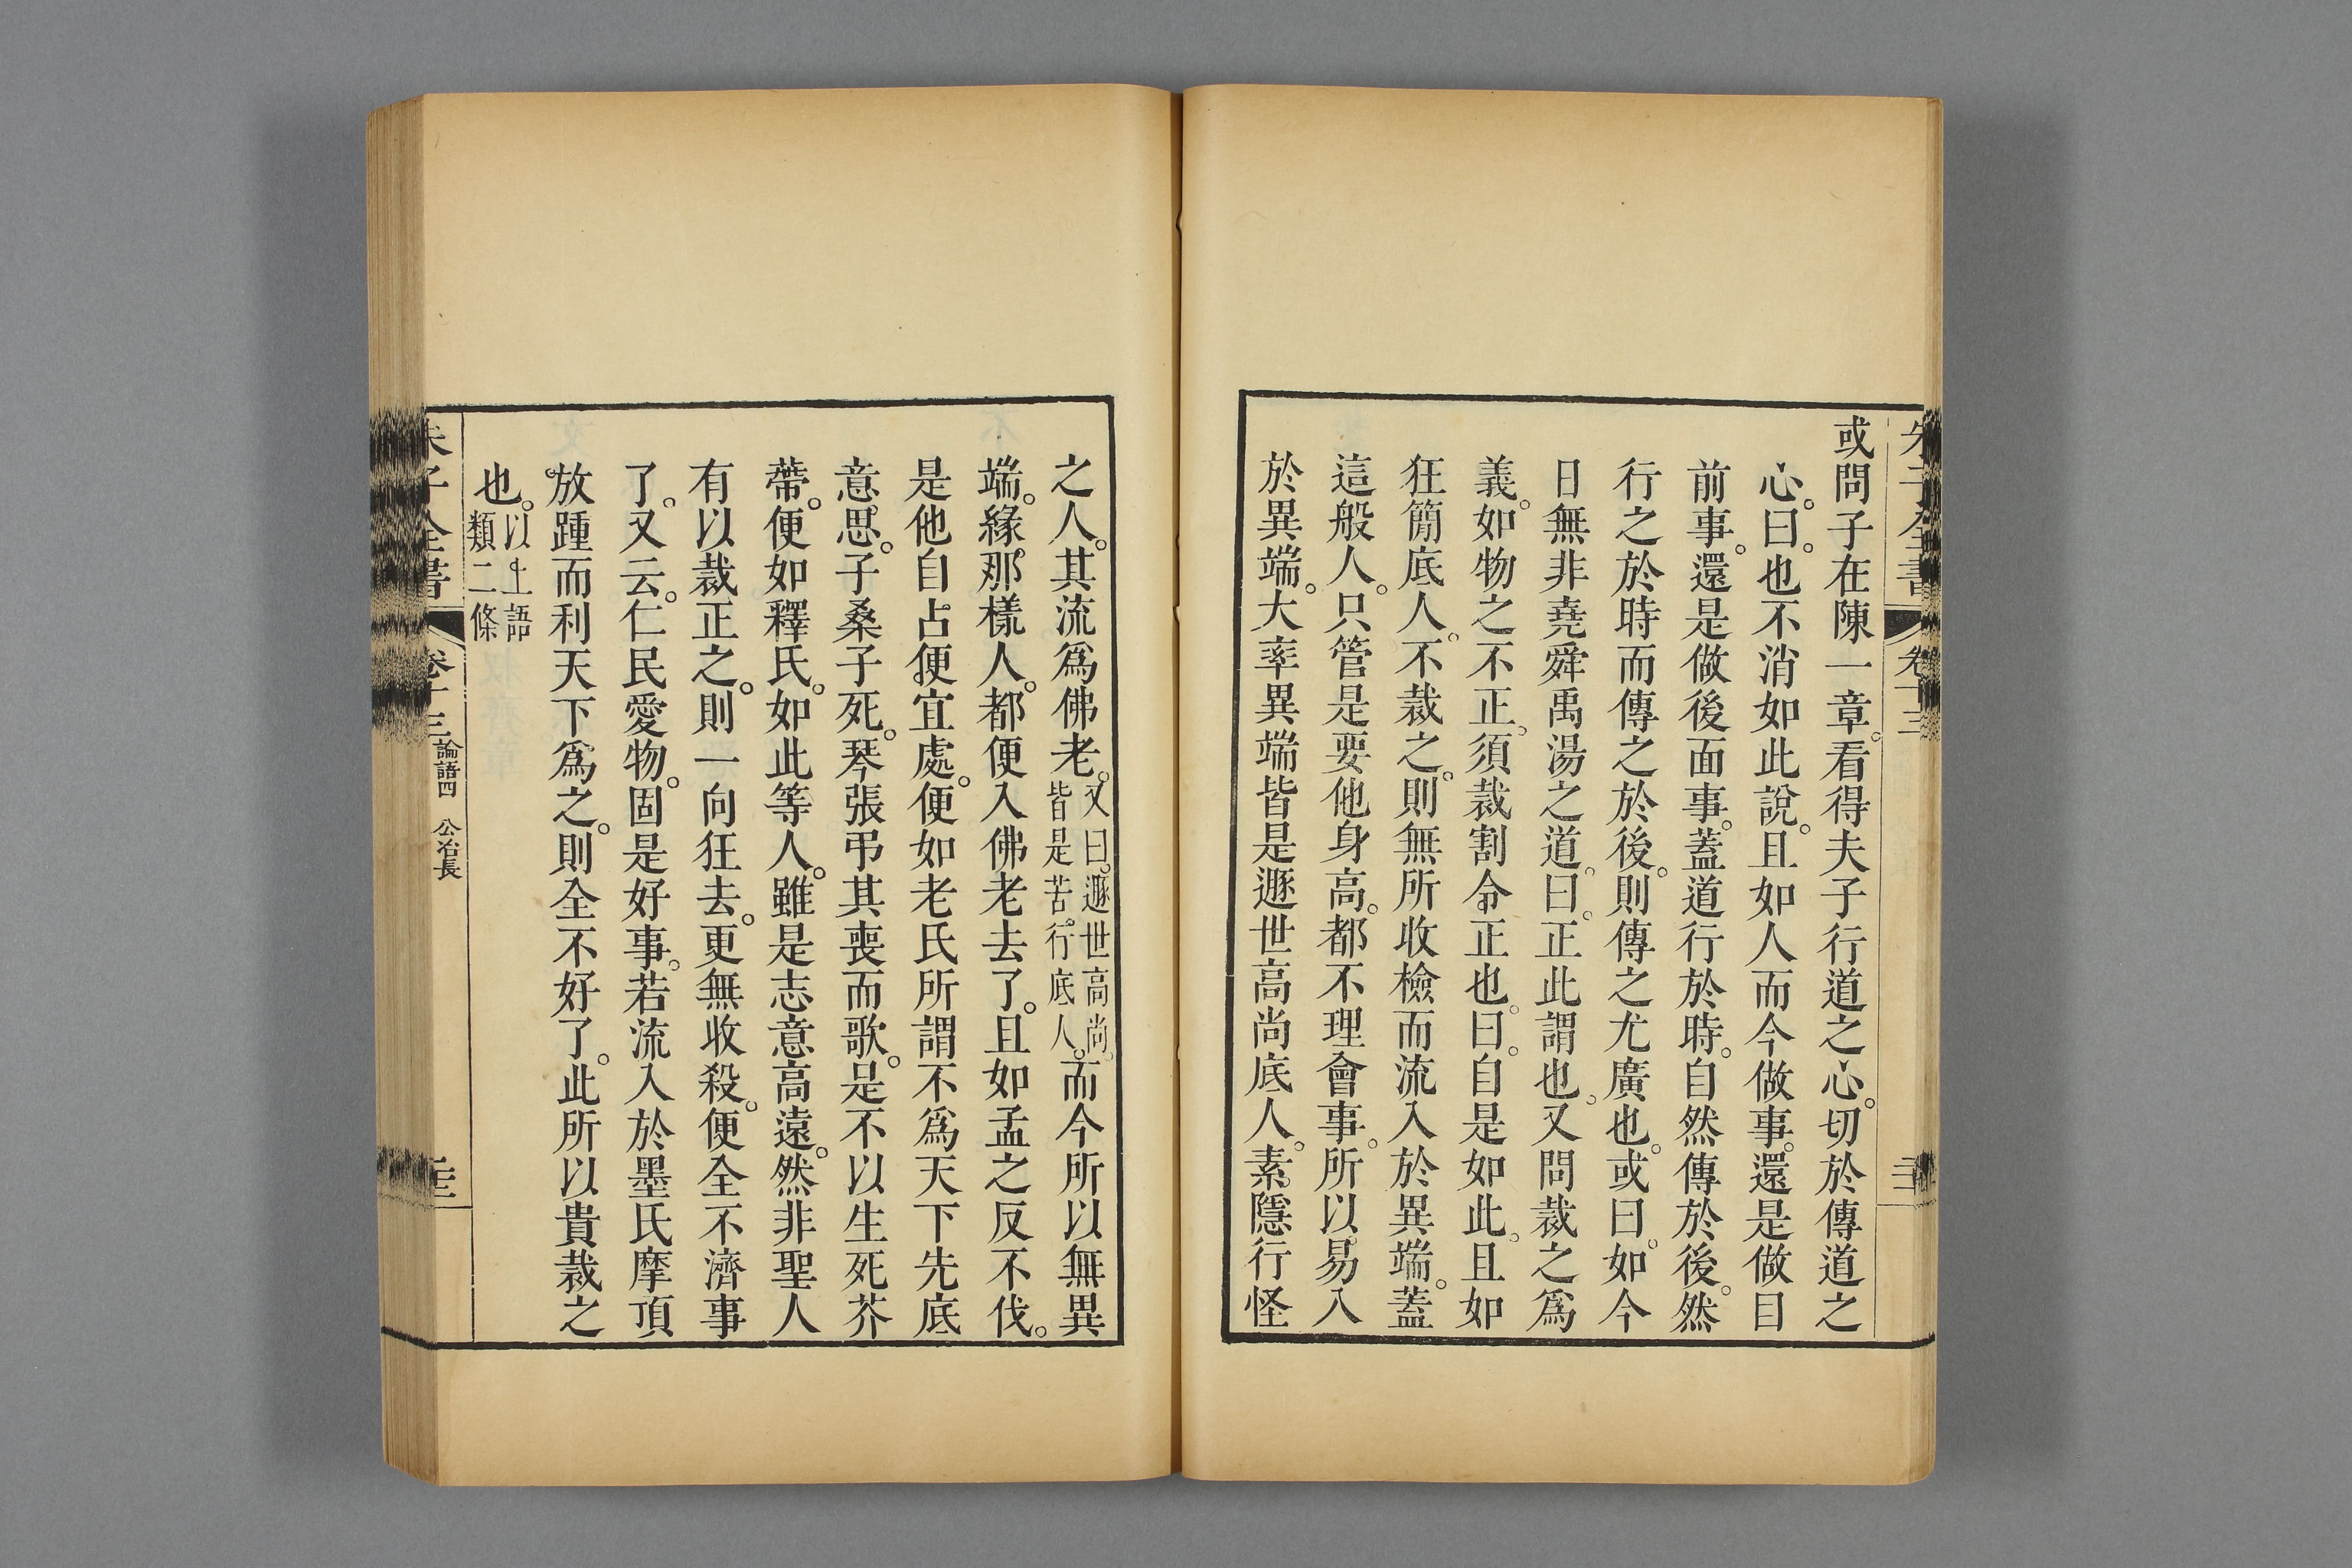 或問子在陳一章。看得夫子行道之心。切於傳道之
心。曰。也不消如此說。且如人而今做事。還是做目
前事。還是做後面事。蓋道行於時。自然傳於後。然
行之於時而傳之於後。則傳之尤廣也。或曰。如今
日無非堯舜禹湯之道。曰。正此謂也。又問裁之爲
義。如物之不正。須裁割令正也。曰。自是如此。且如
狂簡底人。不裁之。則無所收檢而流入於異端。蓋
這般人。只管是要他身高。都不理會事。所以易入
於異端。大率異端皆是遯世高尚底人。素隱行怪
之人。其流爲佛老。又曰。遯世高尚。皆是苦行底人。而今所以無異
端。緣那樣人。都便入佛老去了。且如孟之反不伐。
是他自占便宜處。便如老氏所謂不爲天下先底
意思。子桑子死。琴張弔其喪而歌。是不以生死芥
蔕。便如釋氏。如此等人。雖是志意高遠。然非聖人
有以裁正之。則一向狂去。更無收殺。便全不濟事
了。又云。仁民愛物。固是好事。若流入於墨氏摩頂
放踵而利天下爲之。則全不好了。此所以貴裁之
也。以上語類二條
朱子全書 卷十三 論語四 公冶長